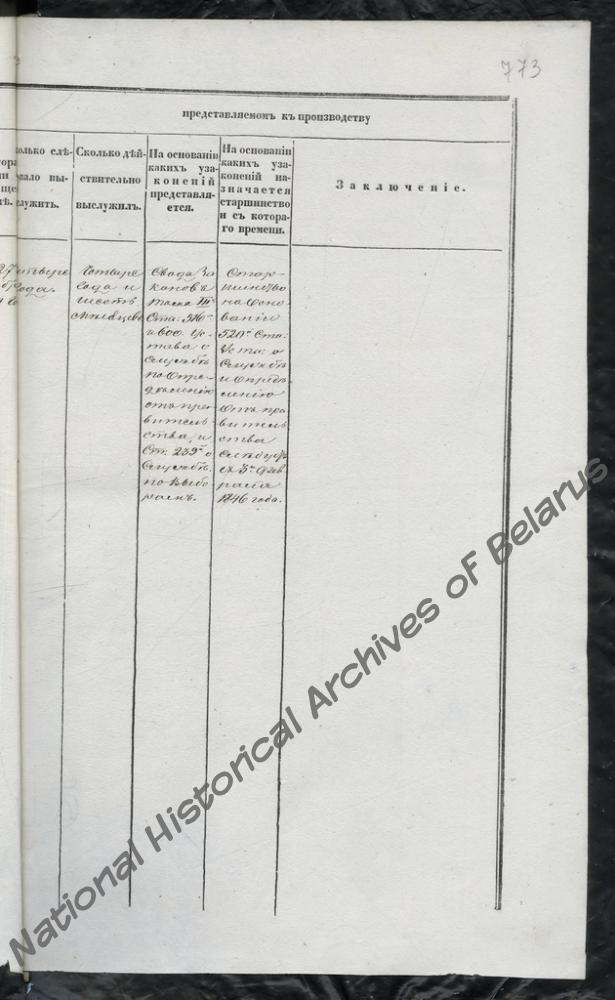 773
представляемомъ къ производству
колько слѣ-
вало вы-
служить.
Сколько дѣй-
ствительно
выслужилъ.
На основаніи
какихъ уза-
коненій
представля-
ется.
На основаніи
какихъ уза-
коненій на-
значается
старшинство
и съ котора-
го времени.
Заключеніе.
27
четыре
года.
Четыре
года и
шесть
мѣсяцевъ
Свода За
коновъ
тома III
Ста: 516
и 600. Ус-
тава о
Службѣ
по опре-
дѣленію
отъ пра-
витель-
ства, и
Ст. 239 о
Службѣ
по выбо-
рамъ.
Стар-
шинство
на осно-
ваніи
520 Ста:
Уста: о
Службѣ
по опредѣ-
ленію
отъ пра
витель
ства
съ 3 Фев
раля
1846 года.
National Historical Archives of Belarus